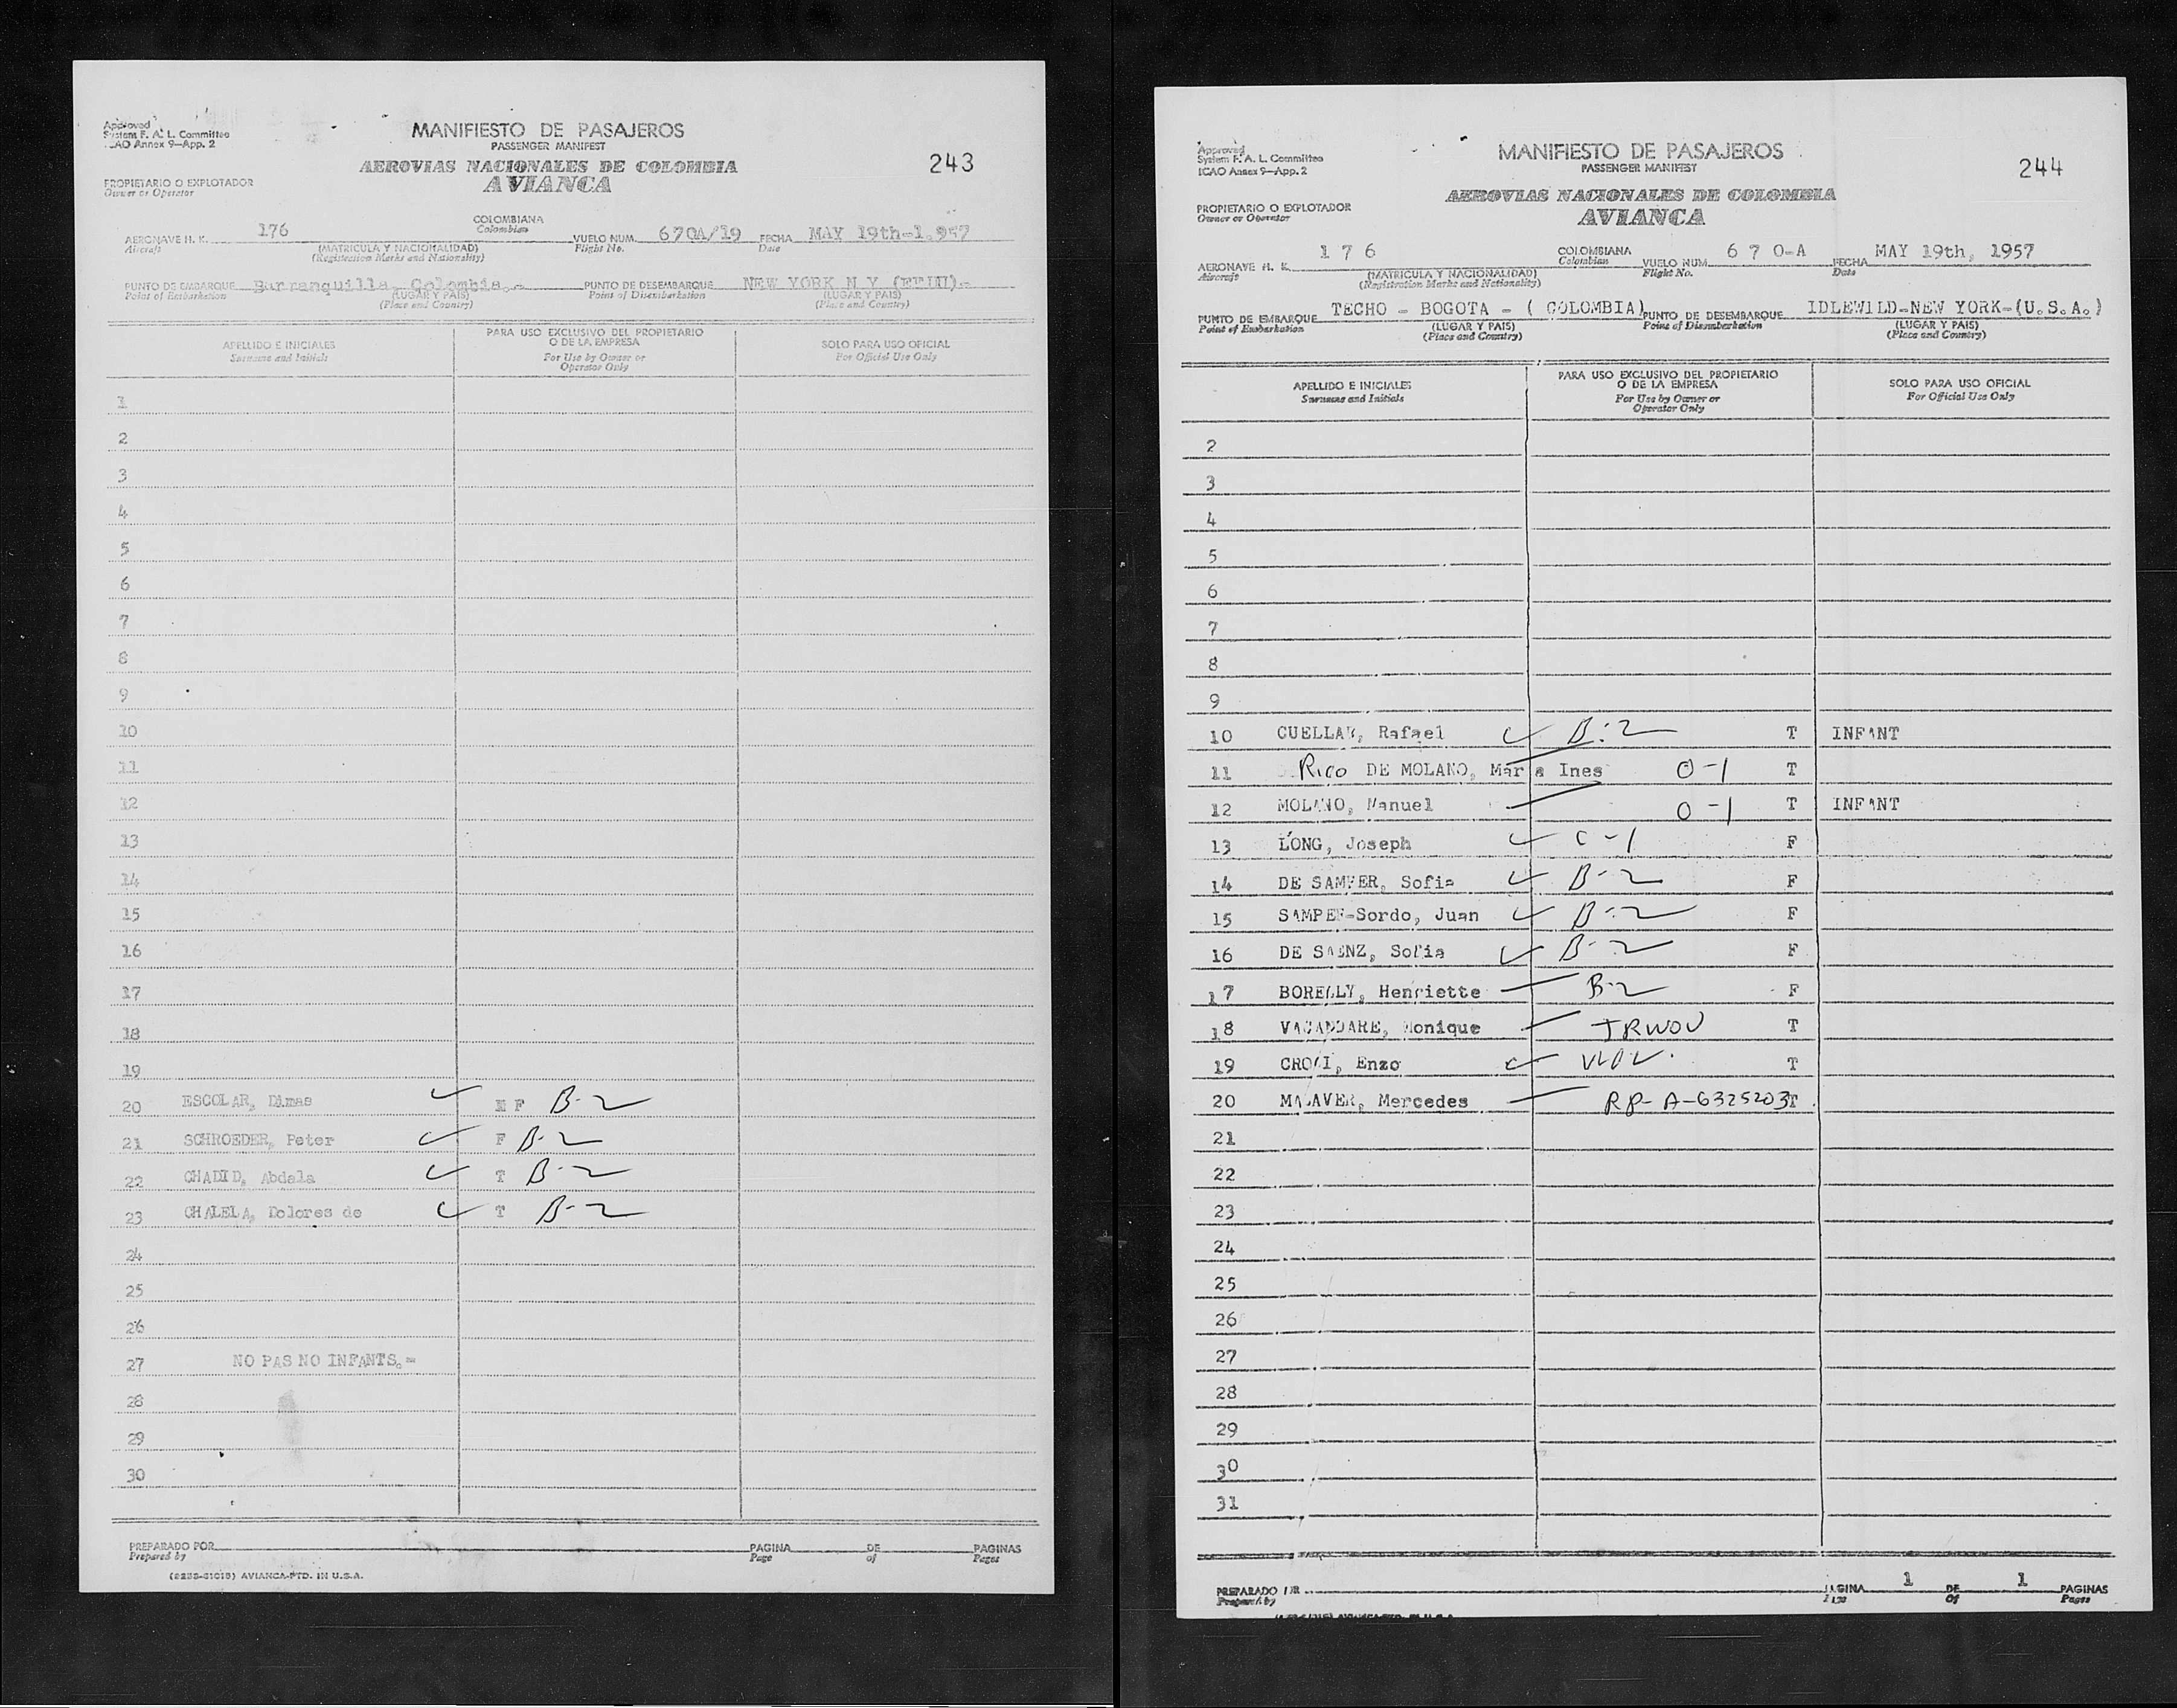 Approved
System F. A. L. Committee
ICAO Annex 9—App. 2
MANIFIESTO DE PASAJEROS
PASSENGER MANIFEST
AEROVIAS NACIONALES DE COLOMBIA
AVIANCA
243
PROPIETARIO O EXPLOTADOR
Owner or Operator
AERONAVE H. K. 176 COLOMBIANA VUELO NUM. 670A/19 FECHA MAY 19th-1.957
Aircraft (MATRICULA Y NACIONALIDAD) Colombian Flight No. Date
(Registration Marks and Nationality)
PUNTO DE EMBARQUE Barranquilla, Colombia.- PUNTO DE DESEMBARQUE NEW YORK N Y
Point of Embarkation (LUGAR Y PAIS) Point of Disembarkation (LUGAR Y PAIS)
(Place and Country) (Place and Country)
APELLIDO E INICIALES
Surname and Initials
PARA USO EXCLUSIVO DEL PROPIETARIO
O DE LA EMPRESA
For Use by Owner or
Operator Only
SOLO PARA USO OFICIAL
For Official Use Only
1
2
3
4
5
6
7
8
9
10
11
12
13
14
15
16
17
18
19
20 ESCOLAR, Dimas ✓ F B-2
21 SCHROEDER, Peter ✓ F B-2
22 CHADID, Abdala ✓ T B-2
23 CHALELA, Dolores de ✓ T B-2
24
25
26
27 NO PAS NO INFANTS.=
28
29
30
PREPARADO POR PAGINA DE PAGINAS
Prepared by Page of Pages
AVIANCA-PTD. IN U.S.A.
Approved
System F. A. L. Committee
ICAO Annex 9—App. 2
MANIFIESTO DE PASAJEROS
PASSENGER MANIFEST
AEROVIAS NACIONALES DE COLOMBIA
AVIANCA
244
PROPIETARIO O EXPLOTADOR
Owner or Operator
AERONAVE H. K. 1 7 6 COLOMBIANA VUELO NUM. 6 7 0-A FECHA MAY 19th, 1957
Aircraft (MATRICULA Y NACIONALIDAD) Colombian Flight No. Date
(Registration Marks and Nationality)
PUNTO DE EMBARQUE TECHO - BOGOTA - ( COLOMBIA) PUNTO DE DESEMBARQUE IDLEWILD-NEW YORK-(U.S.A.)
Point of Embarkation (LUGAR Y PAIS) Point of Disembarkation (LUGAR Y PAIS)
(Place and Country) (Place and Country)
APELLIDO E INICIALES
Surname and Initials
PARA USO EXCLUSIVO DEL PROPIETARIO
O DE LA EMPRESA
For Use by Owner or
Operator Only
SOLO PARA USO OFICIAL
For Official Use Only
2
3
4
5
6
7
8
9
10 CUELLAR, Rafael ✓ B-2 T INFANT
11 Rico DE MOLANO, Maria Ines O-1 T
12 MOLANO, Manuel O-1 T INFANT
13 LONG, Joseph ✓ C-1 F
14 DE SAMPER, Sofia ✓ B-2 F
15 SAMPER-Sordo, Juan ✓ B-2 F
16 DE SAENZ, Sofia ✓ B-2 F
17 BORELLY, Henriette B-2 F
18 VACANDARE, Monique TRWOV T
19 Enzo ✓ T
20 MALAVER, Mercedes RP-A-6325203 T
21
22
23
24
25
26
27
28
29
30
31
PREPARADO POR PAGINA 1 DE 1 PAGINAS
Prepared by Page Of Pages